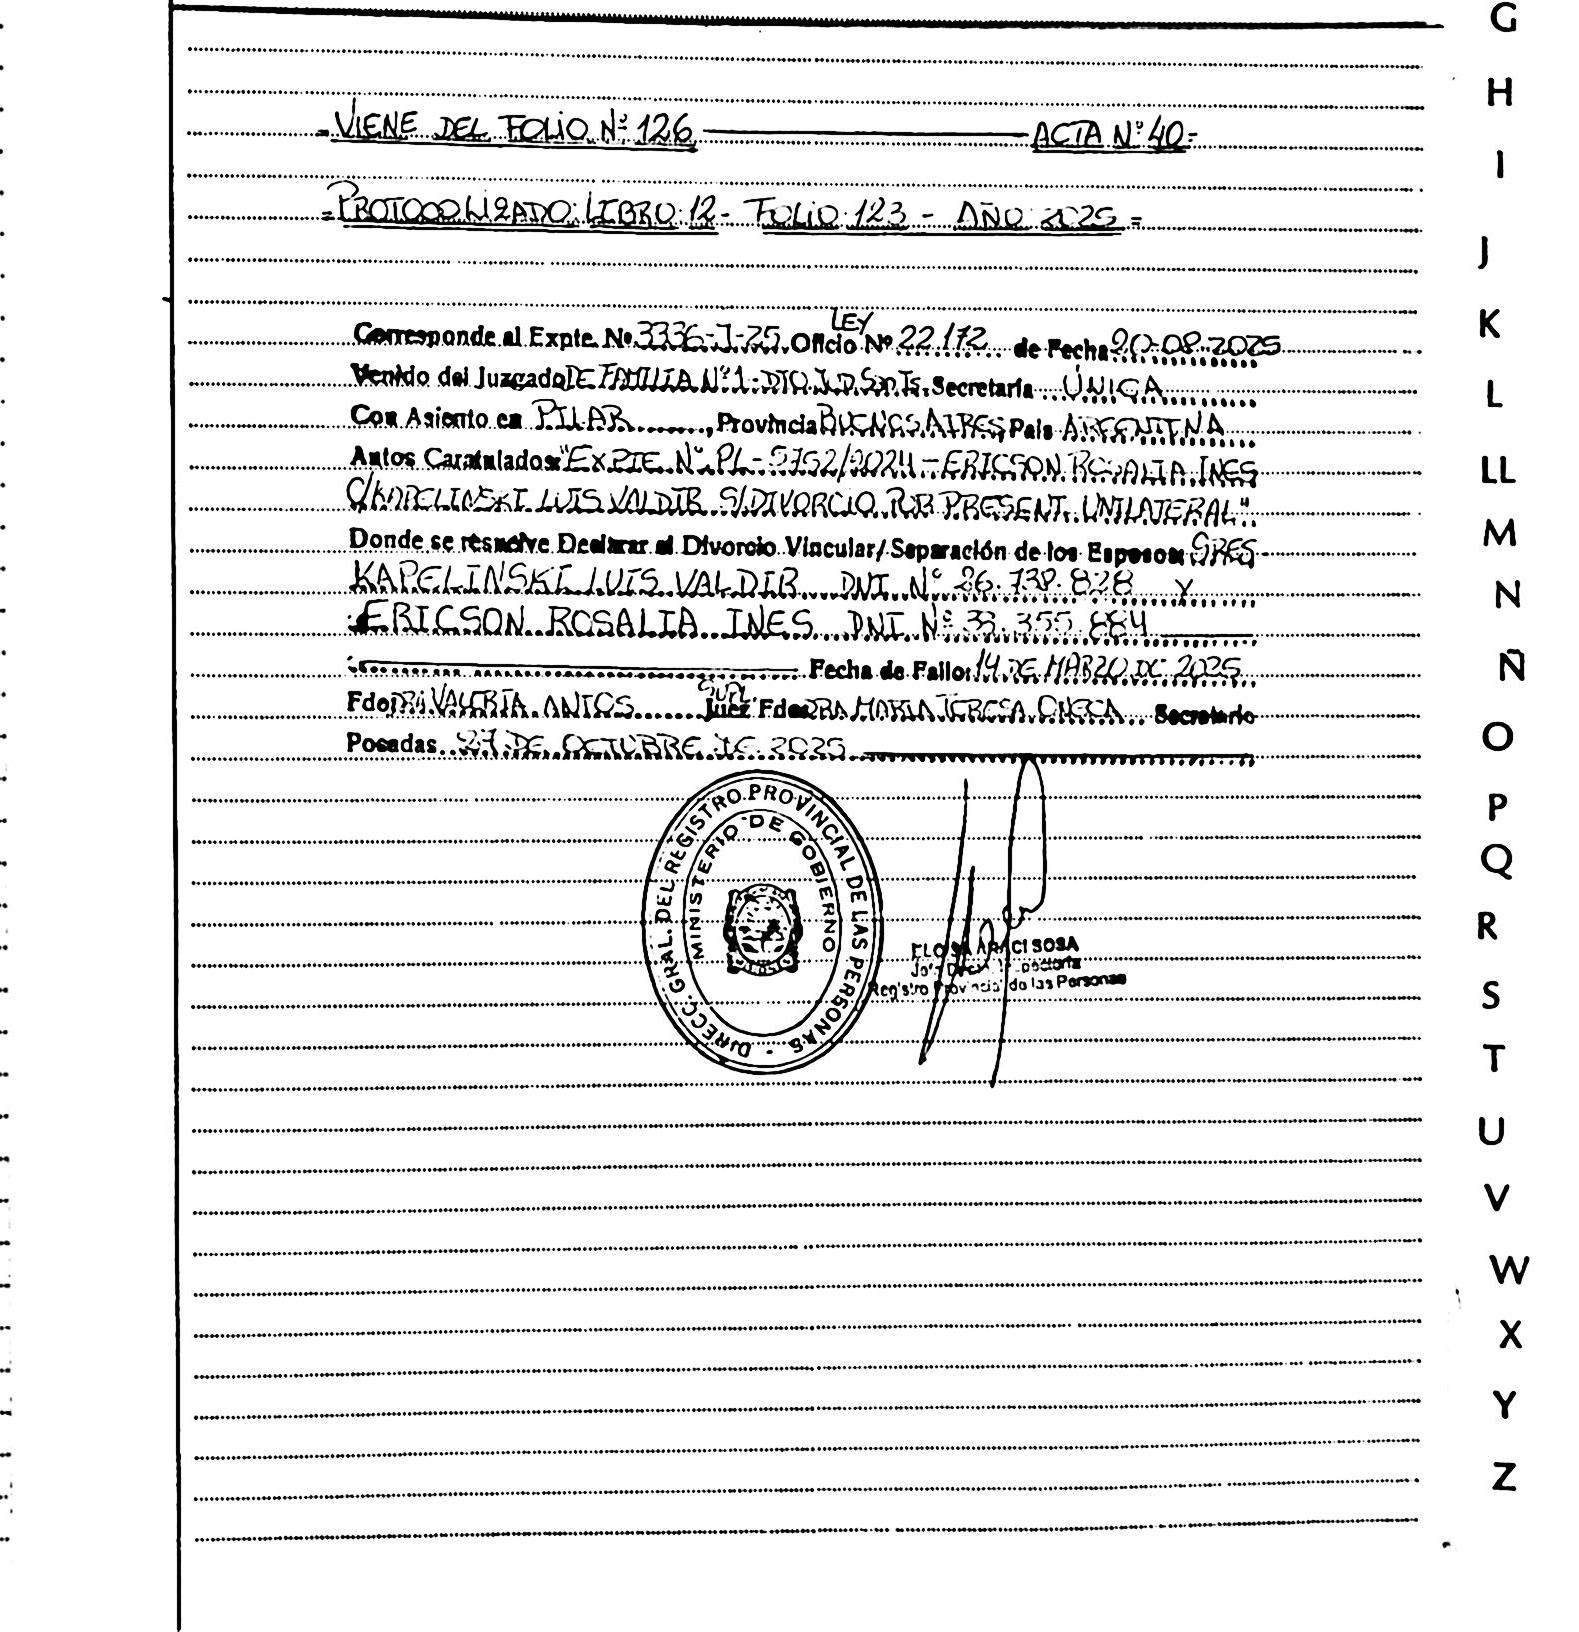 =VIENE DEL FOLIO Nº 126 ACTA Nº 40=
=PROTOCOLIZADO: LIBRO: 12- FOLIO: 123 - AÑO 2025=
LEY
Corresponde al Expte. Nº 3336-J-25 Oficio Nº 22.172 de Fecha 20-08-2025
Venido del Juzgado DE FAMILIA Nº 1- Secretaría ÚNICA
Con Asiento en PILAR, Provincia BUENOS AIRES País ARGENTINA
Autos Caratulados: "EXPTE Nº PL-5752/2024 - ERICSON ROSALIA INES
C/KAPELINSKI LUIS VALDIR S/DIVORCIO POR PRESENT. UNILATERAL".
Donde se resuelve Declarar el Divorcio Vincular/Separación de los Esposos: SRES-
KAPELINSKI LUIS VALDIR DNI Nº 26.738.828 Y
ERICSON ROSALIA INES DNI Nº 33.355.884
Fecha de Fallo: 14 DE MARZO DE 2025
SUPL.
Fdo: VALERIA Juez Fdo: DRA MARIA TERESA Secretario
Posadas 27 DE OCTUBRE DE 2025
DIRECC. GRAL. DEL REGISTRO PROVINCIAL DE LAS PERSONAS -
MINISTERIO DE GOBIERNO
ARACI SOSA
Registro Provincial de las Personas
G
H
I
J
K
L
LL
M
N
Ñ
O
P
Q
R
S
T
U
V
W
X
Y
Z